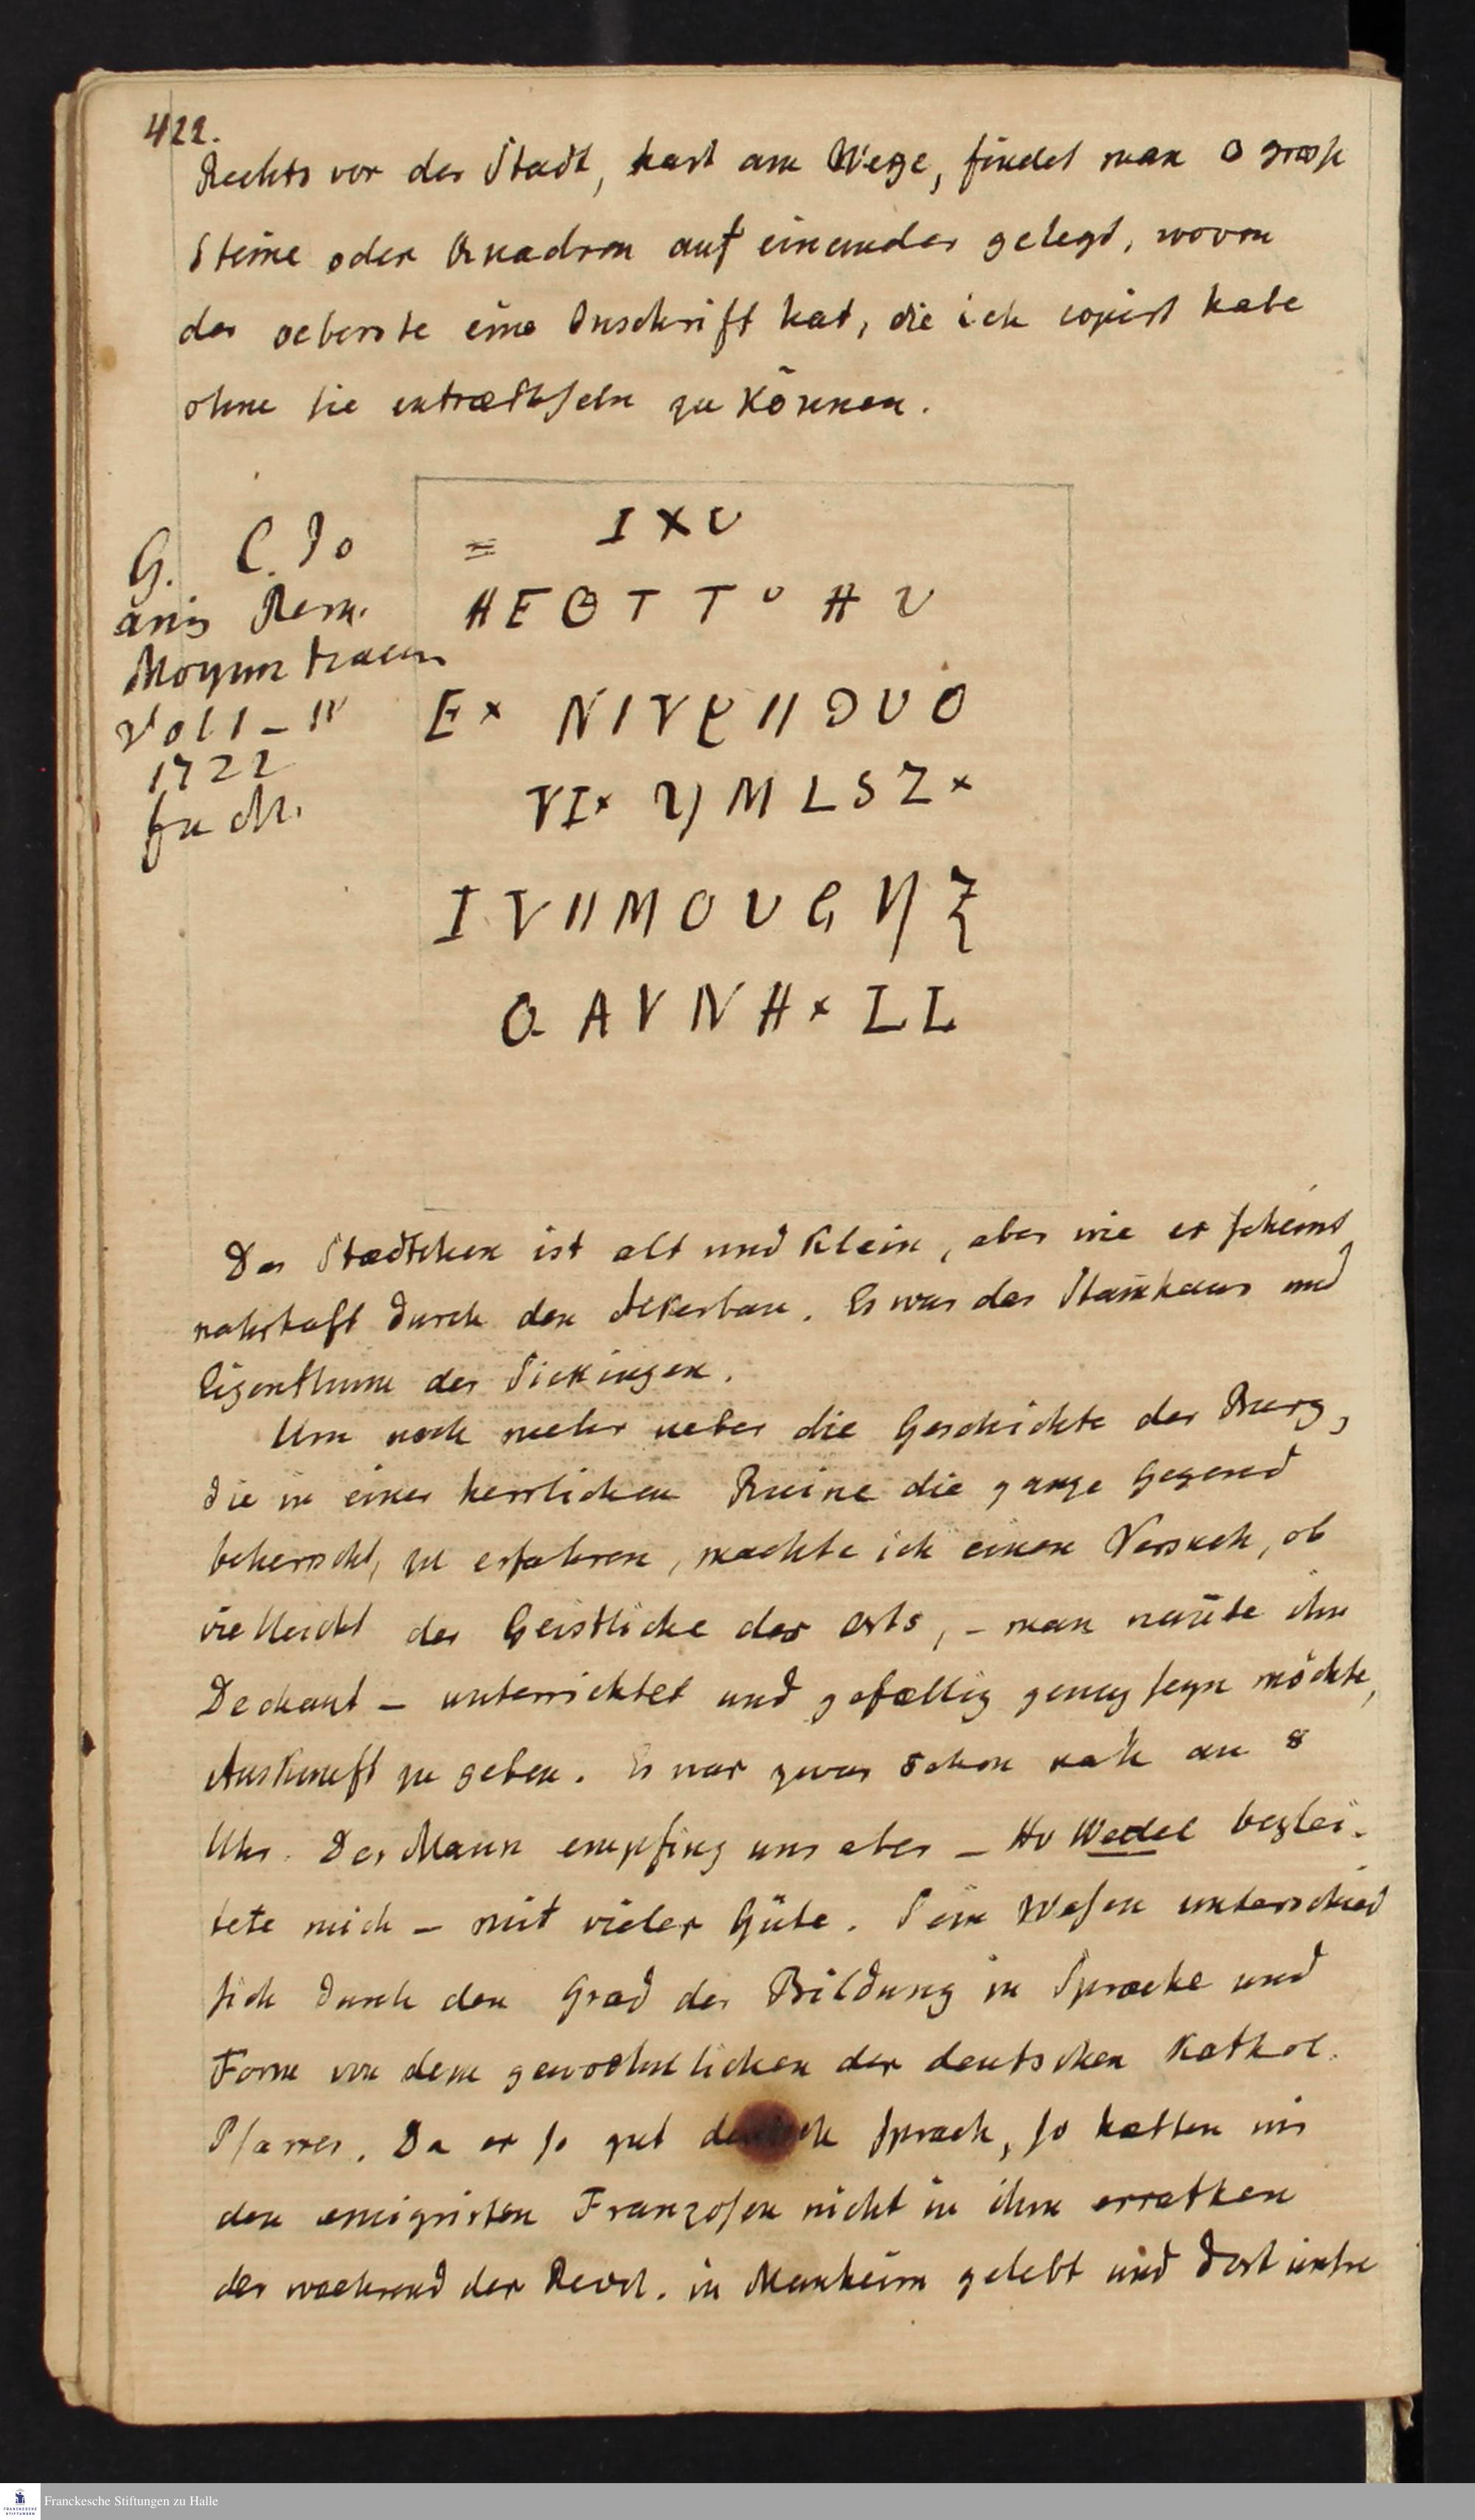 422.
Rechts vor der Stadt, hart am Wege, findet man 3 große
Steine oder Quadern auf einander gelegt, wovon
der oeberste eine Inschrift hat, die ich copirt habe
ohne sie entraethseln zu können.
G. C. Jo
anis Rerum
Moguntiacar
Vol I - II
1722
Fr a M.
= I X U
H E Θ T T o H U
E x N I V E II D U O
V I x M L S Z x
I V II M O U G Z
Q A V N H x L L
Das Staedtchen ist alt und klein, aber wie es scheint
nahrhaft durch den Ackerbau. Es war das Stam̄haus und
Eigenthum der Sickingen.
Um noch mehr ueber die Geschichte der Burg,
die in einer herrlichen Ruine die ganze Gegend
beherrscht, zu erfahren, machte ich einen Versuch, ob
vielleicht der Geistliche des Orts, - man nan̄te ihn
Dechant - unterrichtet und gefaellig genug seyn möchte,
Auskunft zu geben. Es war zwar schon nah an 8
Uhr. Der Mann empfing uns aber - Hr Wedel beglei-
tete mich - mit vieler Güte. Sein Wesen unterschied
sich durch den Grad der Bildung in Sprache und
Form von dem gewoehnlichen der deutschen Kathol.
Pfarrer. Da er so gut deutsch sprach, so hatten wir
den emigrirten Franzosen nicht in ihm errathen
der waehrend der Revol. in Manheim gelebt und dort
Franckesche Stiftungen zu Halle